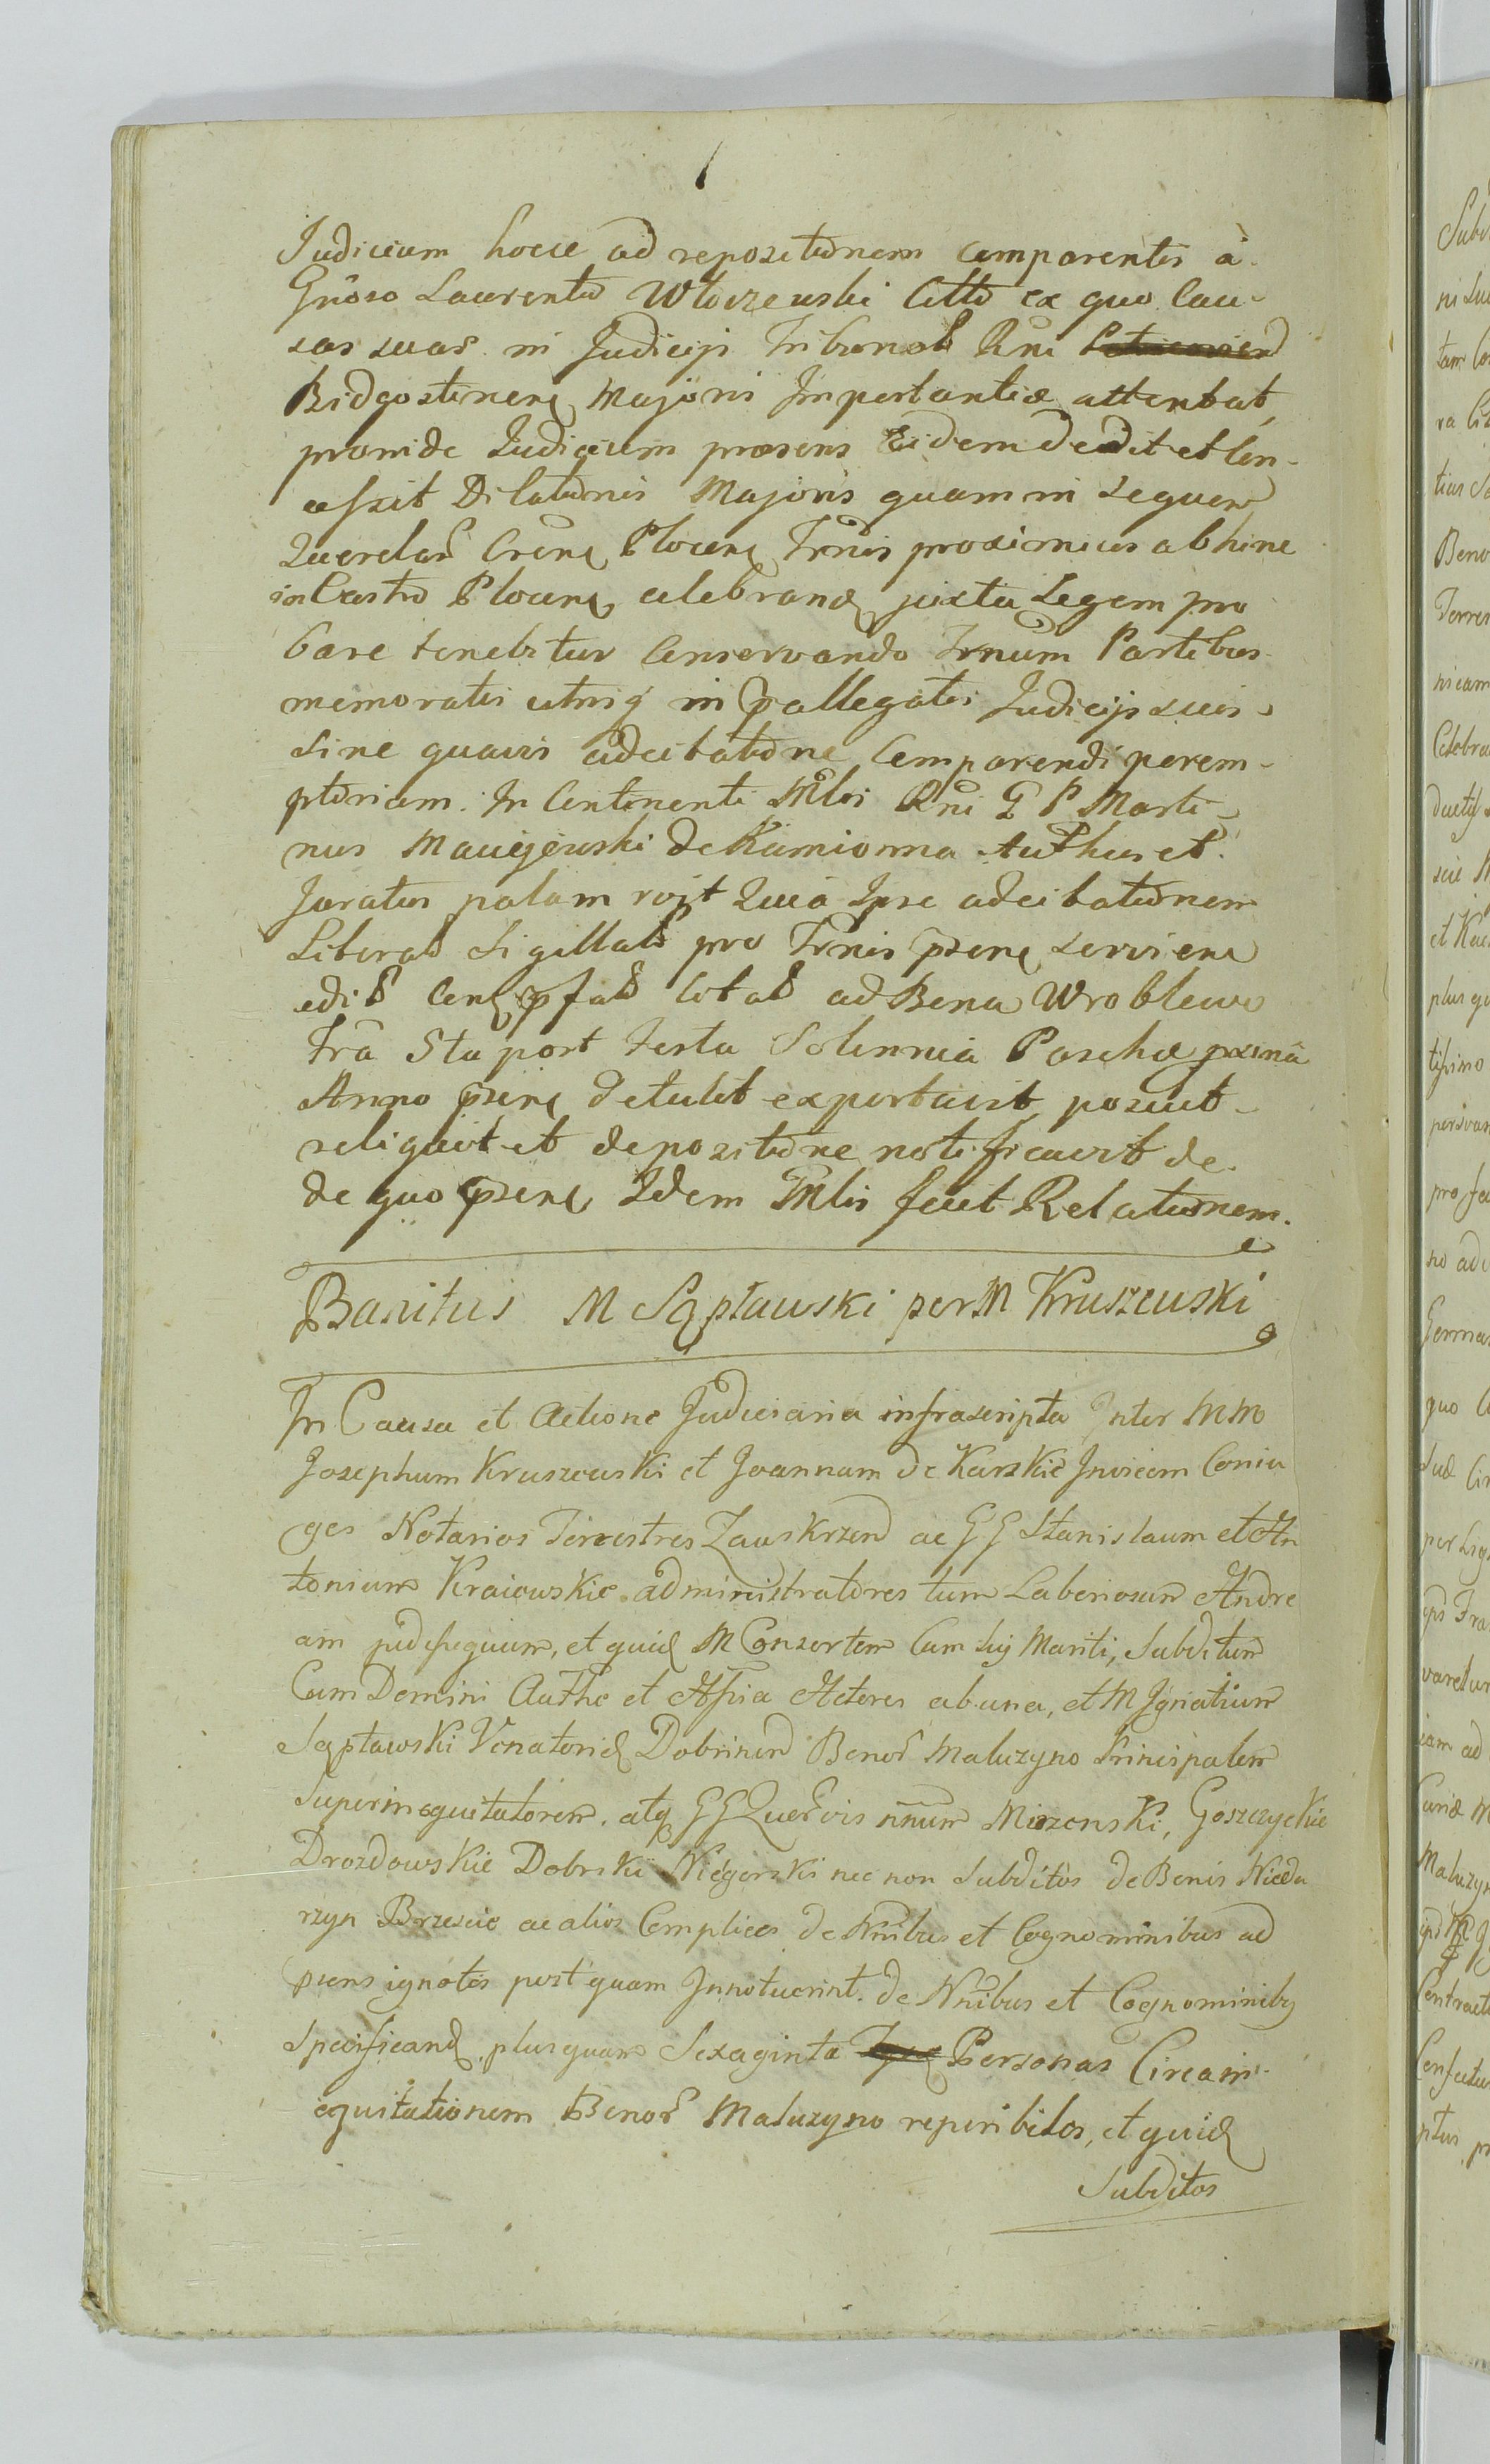 Judicium hocce ad repositionem comparentis à
Gnoso Laurentio Włoczewski Citto ex quo Cau-
sas suas in Judicijs Tribunal Rni
Bidgostinen Majoris Importantiæ attentat,
proinde Judicium præsens Eidem dedit et Con-
cessit Dilationis Majoris quam in sequen
Querelar Crene Plocen Trnis proximius abhinc
in Castro Plocen celebrand juxta Legem pro
bare tenebitur Conservando Trnum Partibus
memoratis utrisq in pallegatis Judicijs suis
sine quavis adcitatione Comparendi perem-
ptorium. In Continenti Mlis Rni G P Marti-
nus Maciejewski de Kamionna Authus et
Juratus palam rnjt Quia Ipse adcitationem
Literal Sigillat pro Trnis psen servien
edit Cen pfat Citat ad Bona Wroblewo
Fra 5ta post Festa Solennia Paschæ pxima
Anno psen detulit exportavit posuit
reliquit et depositione notificavit de
de quo psen Idem Mlis fecit Relationem.
Banitus M Sęptawski per M Kruszewski
In Causa et Actione Judiciaria infrascripta Inter MM
Josephum Kruszewski et Joannam de Karskie Invicem Coniu
ges Notarios Terrestres Zawskrzen ac GG Stanislaum et An
tonium Kraiewskie administratores tum Laboriosum Andre
am pedisequum, et quid M Consortem Cum sui Mariti, Subditum
Cum Domini Authe et Assia Actores ab una, et M Ignatium
Sęptawski Venatorid Dobrinen Bonor Maluzyno Principalem
Superinequitatorem. atq GG Querovis nnum Miszenski, Goszczyckie
Drozdowskie Dobrski Niegorski nec non Subditos de Bonis Niedu
rzyn Brzescie ac alios Complices de Nnibus et Cognominibus ad
psens ignotos post quam Innotuerint. de Nnibus et Cognominibq
specificand. plusquam Sexaginta Personas Circa in-
equitationem Bonor Maluzyno repiribiles, et quid
Subditos